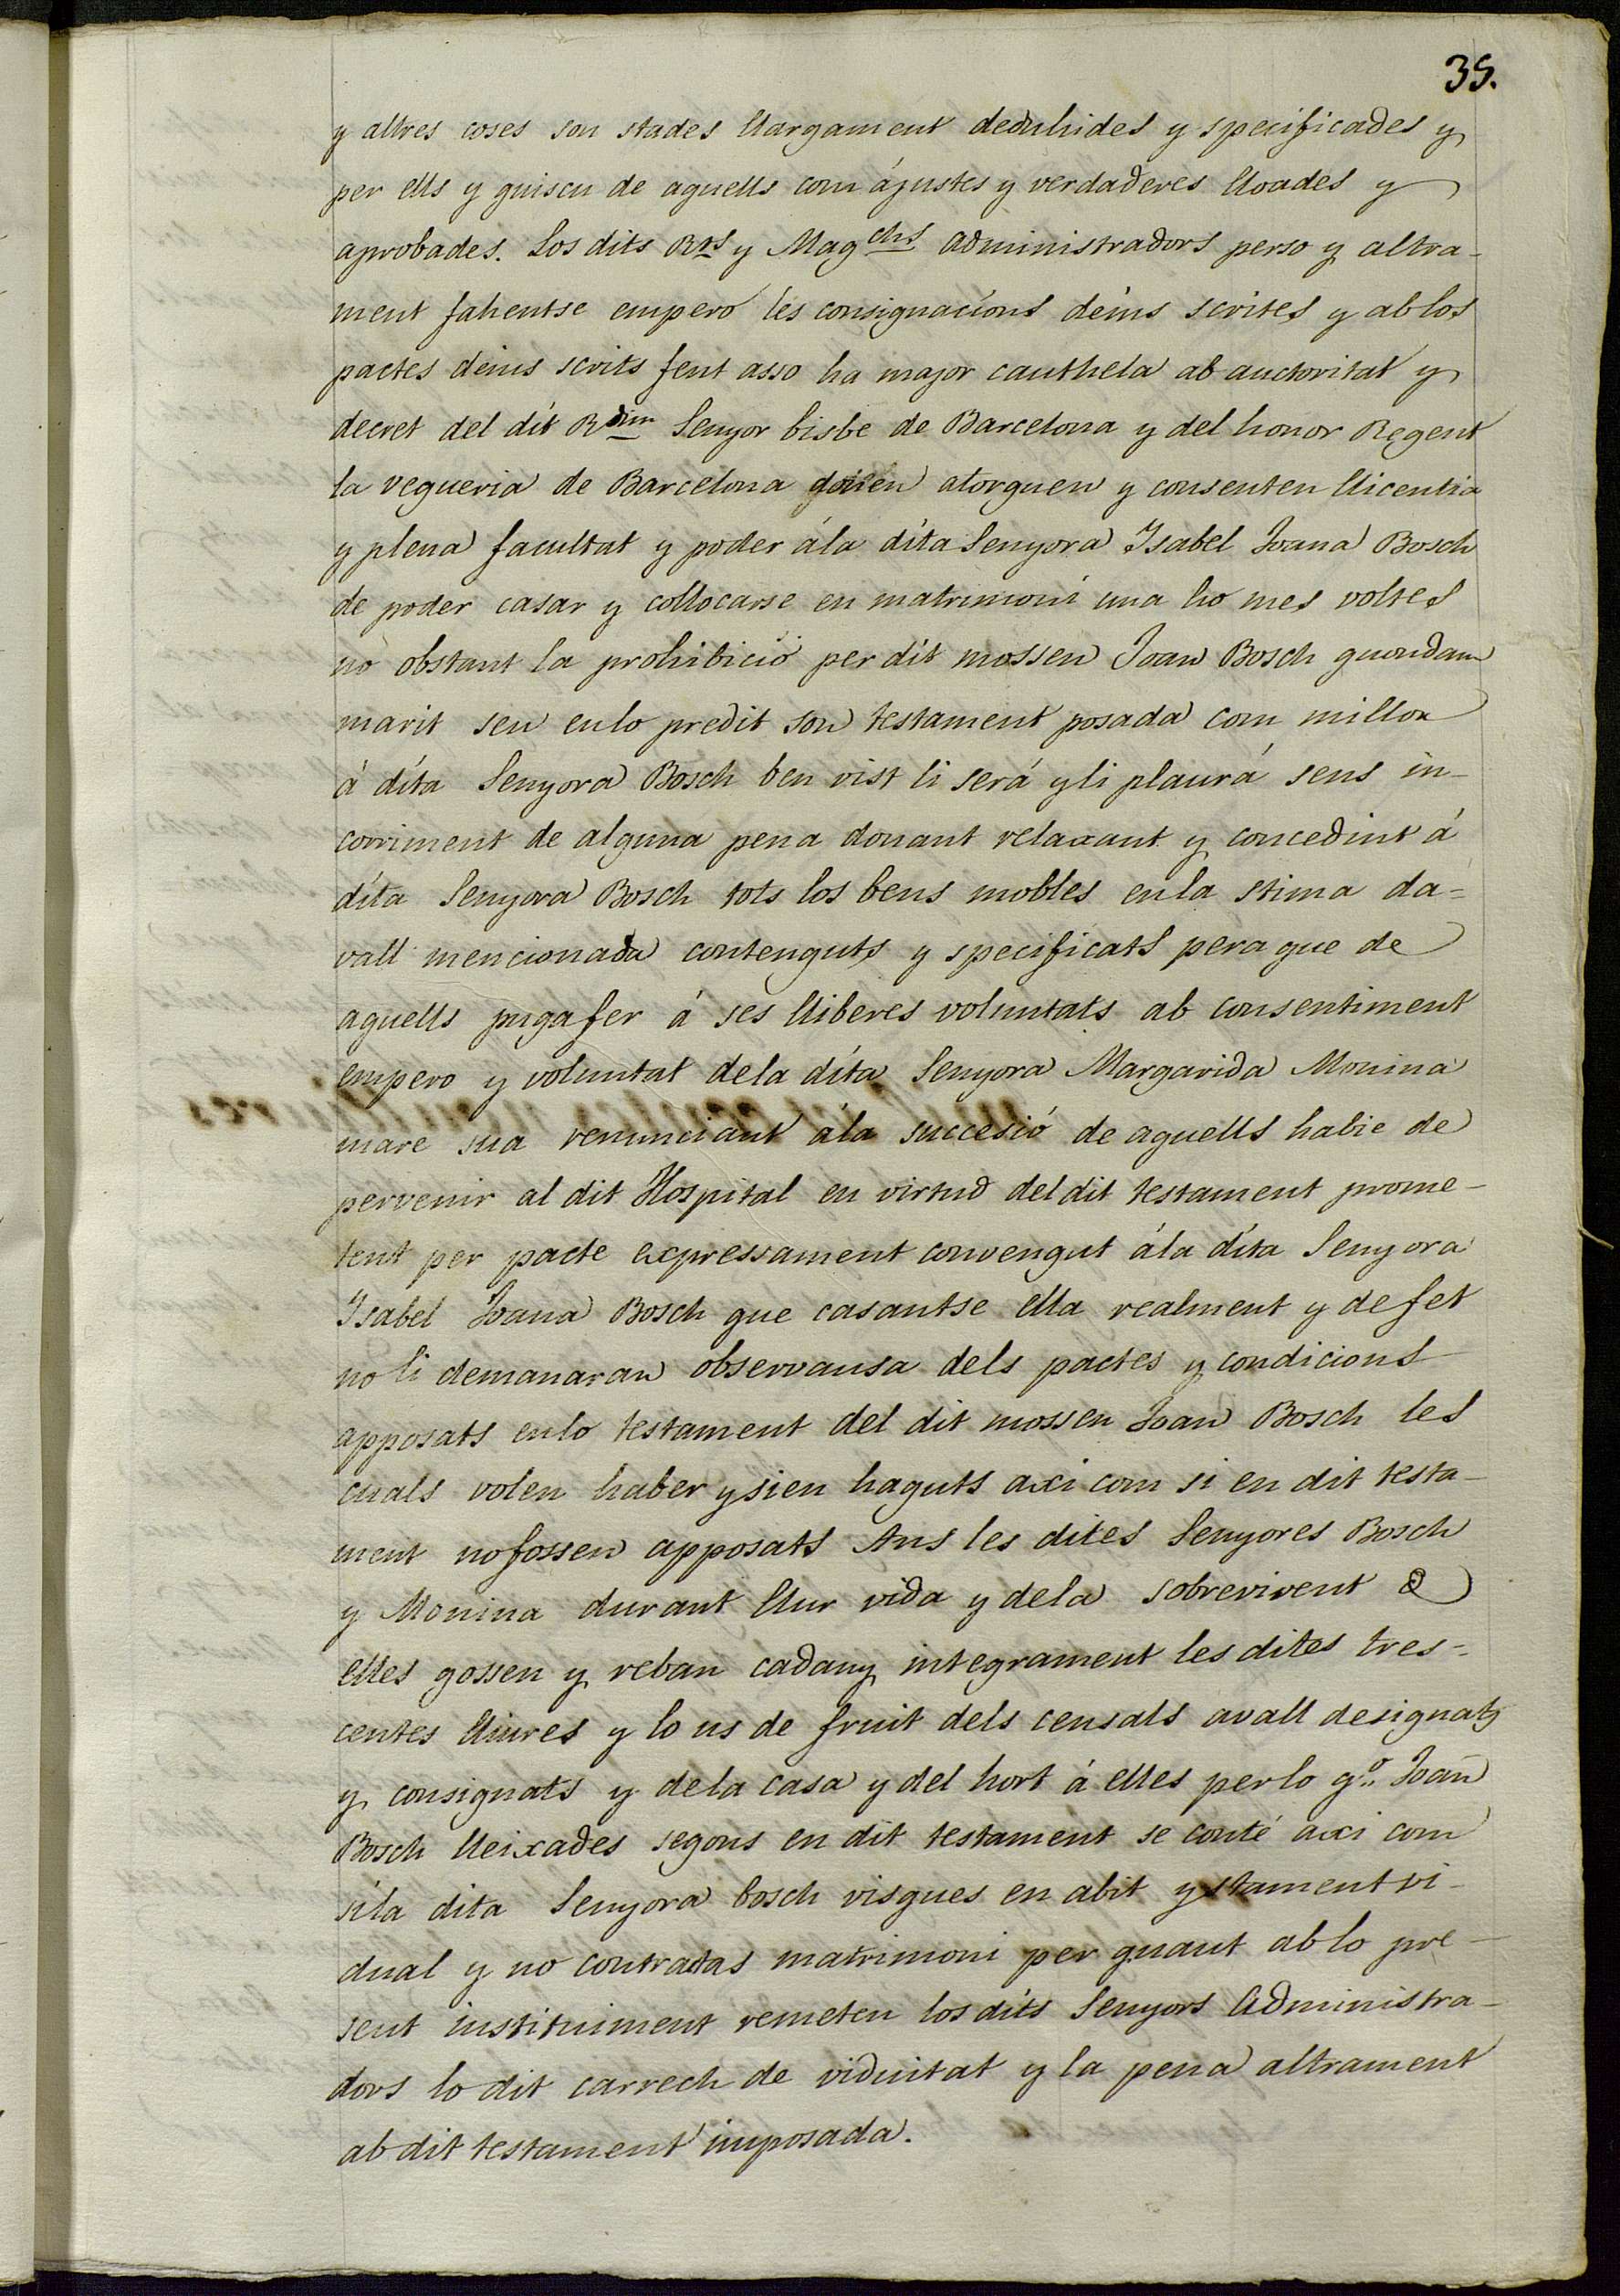 35.
y altres coses son stades llargament deduhides y specificades y
per ells y guiscu de aquells com ájustes y verdaderes lloades y
aprobades. Los dits Rts y Magchs administradors perso y altra-
ment fahentse empero les consignacions deins scrites y ab los
pactes deins scrits fent asso ha major cauthela ab auctoritat y
decret del dit Rdim Senyor bisbe de Barcelona y del honor Regent
la vegueria de Barcelona donen atorguen y consenten llicentia
y plena facultat y poder ála dita Senyora Isabel Joana Bosch
de poder casar y collocarse en matrimoni una ho mes voltes
no obstant la prohibició per dit mossen Joan Bosch quondam
marit seu enlo predit son testament posada com millor
á dita Senyora Bosch ben vist li será y li plaurá sens in-
corriment de alguna pena donant relaxant y concedint á
dita Senyora Bosch tots los bens mobles enla stima da-
vall mencionada contenguts y specificats pera que de
aquells puga fer á ses lliberes voluntats ab consentiment
empero y voluntat dela dita Senyora Margarida Monina
mare sua renunciant ála succesió de aquells habie de
pervenir al dit Hospital en virtud del dit testament prome-
tent per pacte expressament convengut ála dita Senyora
Isabel Joana Bosch que casantse ella realment y de fet
no li demanaran observansa dels pactes y condicions
apposats enlo testament del dit mossen Joan Bosch les
cuals volen haber y sien haguts axi com si en dit testa-
ment no fossen apposats Ans les dites Senyores Bosch
y Monina durant llur vida y dela sobrevivent
elles gossen y reban cadany integrament les dites tres-
centes lliures y lo us de fruit dels censals avall designats
y consignats y dela casa y del hort á elles perlo qo. Joan
Bosch lleixades segons en dit testament se conté axi com
sila dita Senyora bosch visques en abit y stament vi-
dual y no contratas matrimoni per quant ablo pre-
sent instituiment remeten los dits Senyors Administra-
dors lo dit carrech de viduitat y la pena altrament
ab dit testament imposada.